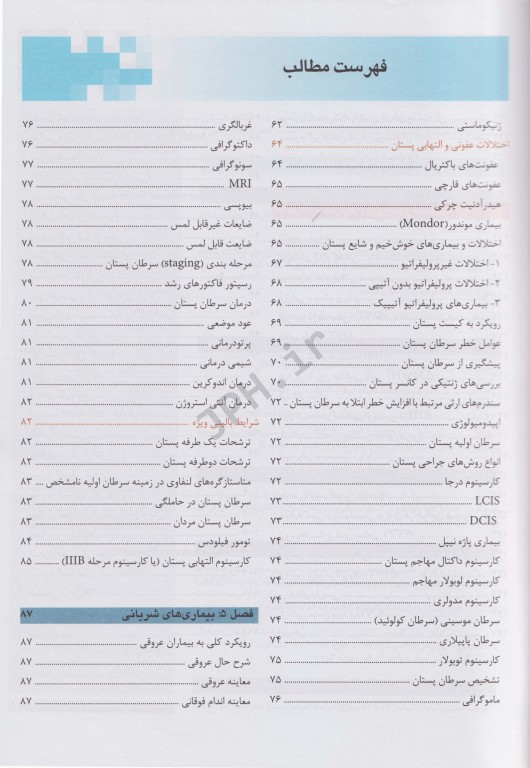 فهرست مطالب
ژنیکوماستی ۶۲
اختلالات عفونی و التهابی پستان ۶۴
عفونت‌های باکتریال ۶۴
عفونت‌های قارچی ۶۵
هیدرآدنیت چرکی ۶۵
بیماری موندور(Mondor) ۶۵
اختلالات و بیماری‌های خوش‌خیم و شایع پستان ۶۵
۱- اختلالات غیرپرولیفراتیو ۶۷
۲- اختلالات پرولیفراتیو بدون آتیپی ۶۸
۳- بیماری‌های پرولیفراتیو آتیپیک ۶۸
رویکرد به کیست پستان ۶۹
عوامل خطر سرطان پستان ۶۹
پیشگیری از سرطان پستان ۷۰
بررسی‌های ژنتیکی در کانسر پستان ۷۰
سندرم‌های ارثی مرتبط با افزایش خطر ابتلا به سرطان پستان ۷۲
اپیدومیولوژی ۷۲
سرطان اولیه پستان ۷۲
انواع روش‌های جراحی پستان ۷۲
کارسینوم درجا ۷۲
LCIS ۷۳
DCIS ۷۳
بیماری پاژه نیپل ۷۴
کارسینوم داکتال مهاجم پستان ۷۴
کارسینوم لوبولار مهاجم ۷۴
کارسینوم مدولری ۷۴
سرطان موسینی (سرطان کولوئید) ۷۴
سرطان پاپیلاری ۷۴
کارسینوم توبولار ۷۵
تشخیص سرطان پستان ۷۵
ماموگرافی ۷۶
غربالگری ۷۶
داکتوگرافی ۷۶
سونوگرافی ۷۷
MRI ۷۷
بیوپسی ۷۸
ضایعات غیرقابل لمس ۷۸
ضایعت قابل لمس ۷۸
مرحله بندی (staging) سرطان پستان ۷۸
رسپتور فاکتورهای رشد ۷۹
درمان سرطان پستان ۸۰
عود موضعی ۸۱
پرتودرمانی ۸۱
شیمی درمانی ۸۱
درمان اندوکرین ۸۱
درمان آنتی استروژن ۸۲
شرایط بالینی ویژه ۸۲
ترشحات یک طرفه پستان ۸۲
ترشحات دوطرفه پستان ۸۲
متاستازگره‌های لنفاوی در زمینه سرطان اولیه نامشخص ۸۳
سرطان پستان در حاملگی ۸۳
سرطان پستان مردان ۸۳
تومور فیلودس ۸۴
کارسینوم التهابی پستان (یا کارسینوم مرحله IIIB) ۸۵
فصل ۵: بیماری‌های شریانی ۸۷
رویکرد کلی به بیماران عروقی ۸۷
شرح حال عروقی ۸۷
معاینه عروقی ۸۷
معاینه اندام فوقانی ۸۷
JPH.ir